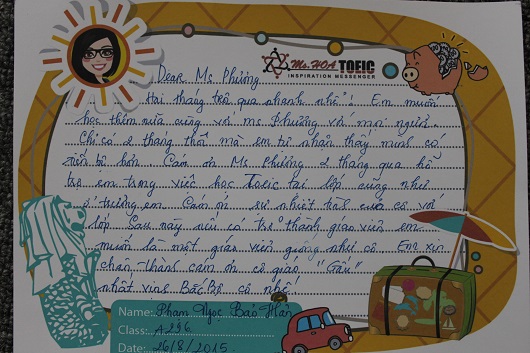 Ms. HOA TOEIC
INSPIRATION MESSENGER
Dear Ms Phương
Hai tháng trôi qua nhanh nhỉ! Em muốn
học thêm nữa cùng với ms Phương và mọi người.
Chỉ có 2 tháng thôi mà em tự nhận thấy mình có
tiến bộ hơn. Cám ơn Ms Phương 2 tháng qua hỗ
trợ em trong việc học Toeic tại lớp cũng như
ở trường em. Cám ơn sự nhiệt tình của cô với
lớp. Sau này nếu có trở thành giáo viên em
muốn là một giáo viên giống như cô. Em xin
chân thành cám ơn cô giáo "Gấu"
nhất xinh Bắc Bộ cô nhé!
Name: Phạm Ngọc Bảo Hân
Class: A296
Date: 26/8/2015.